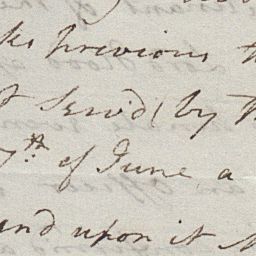 ks previous
serv'd, by
7th of June a
and upon it